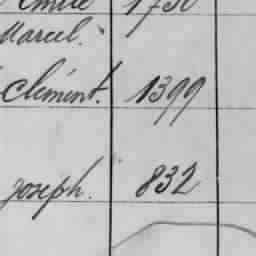 Emile 1730
Marcel.
Clément. 1399
Joseph. 832